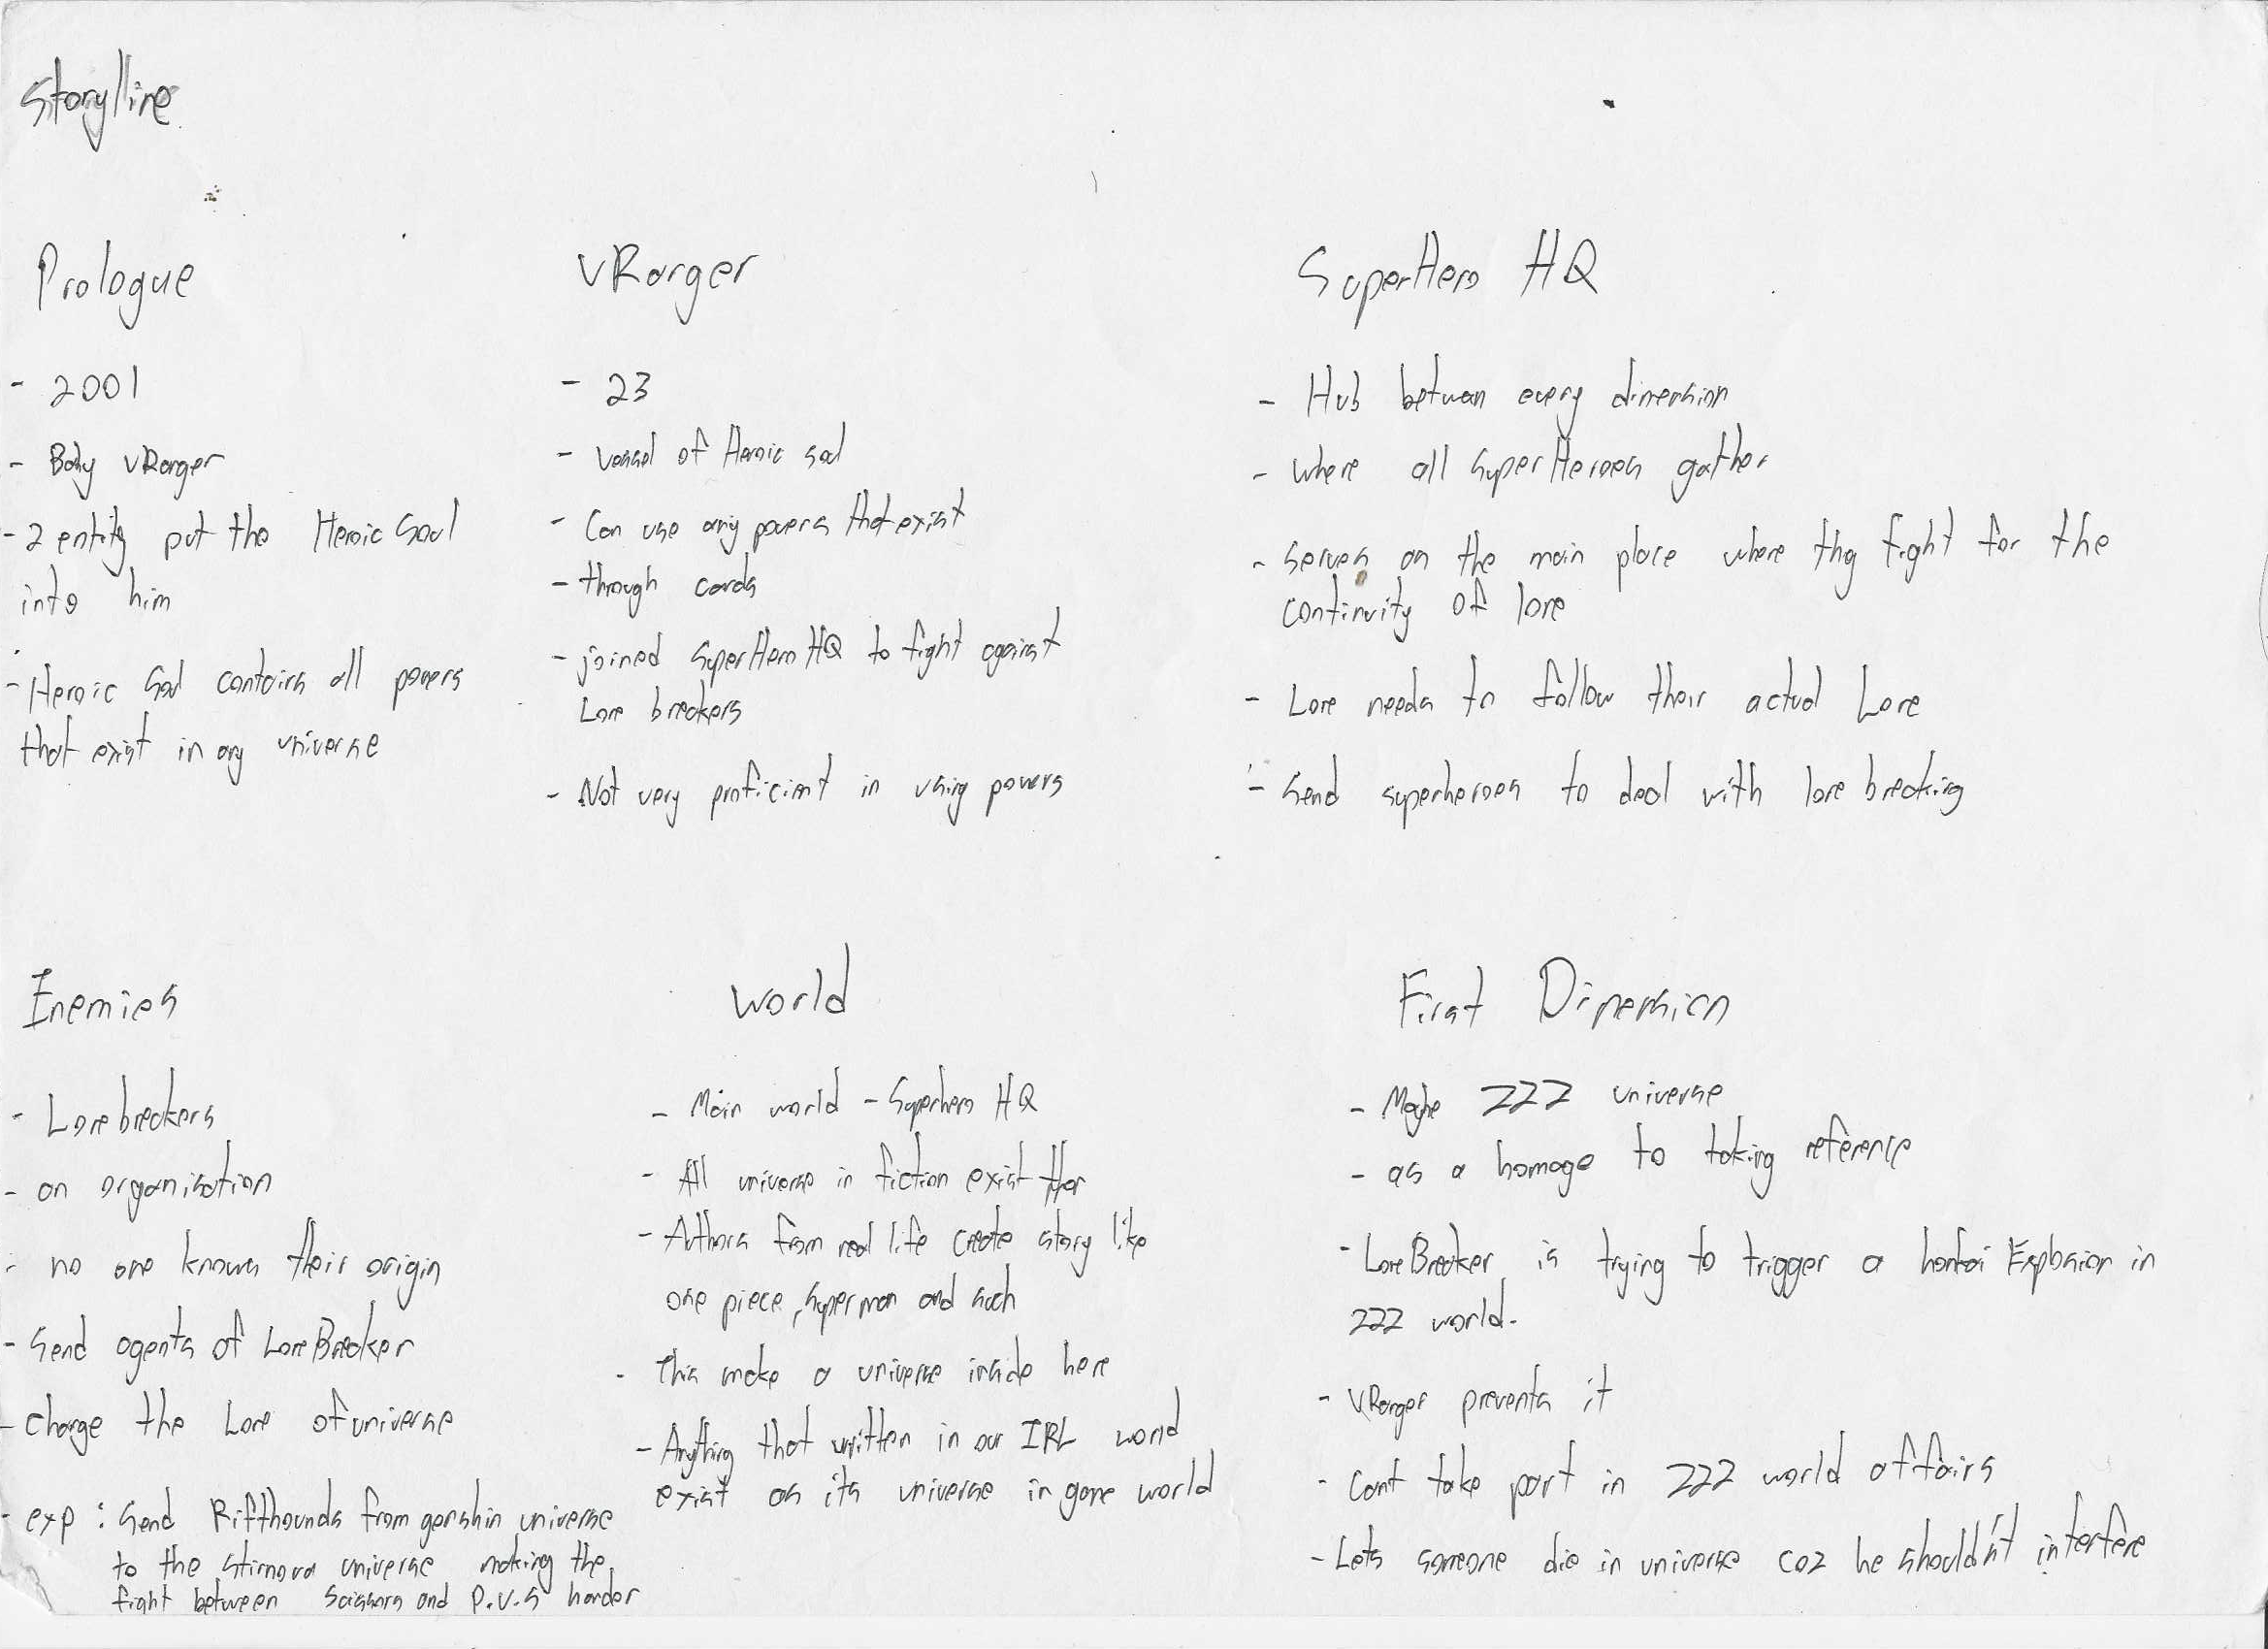 Storyline
Prologue
- 2001
- Baby VRanger
- 2 entity put the Heroic Soul
into him
- Heroic Soul contains all powers
that exist in any universe
VRanger
- 23
- Vessel of Heroic soul
- Can use any powers that exist
- through cards
- joined SuperHero HQ to fight against
Lore breakers
- Not very proficient in using powers
SuperHero HQ
- Hub between every dimension
- where all SuperHeroes gather
- Serves as the main place where they fight for the
continuity of lore
- Lore needs to follow their actual Lore
- Send superheroes to deal with lore breaking
Enemies
- Lorebreakers
- an organisation
- no one knows their origin
- Send agents of LoreBreaker
- Change the Lore of universe
- exp : Send Rifthounds from genshin universe
to the universe making the
fight between Scissors and P.V.S harder
World
- Main world - Superhero HQ
- All universe in fiction exist
- Authors from real life create story like
one piece, superman and such
- This make a universe inside here
- Anything that written in our IRL world
exist as its universe in game world
First Dimension
- Maybe ZZZ universe
- as a homage to taking reference
- LoreBreaker is trying to trigger a Explosion in
ZZZ world.
- VRanger prevents it
- Cant take part in ZZZ world affairs
- Lets someone die in universe coz he shouldn't interfere